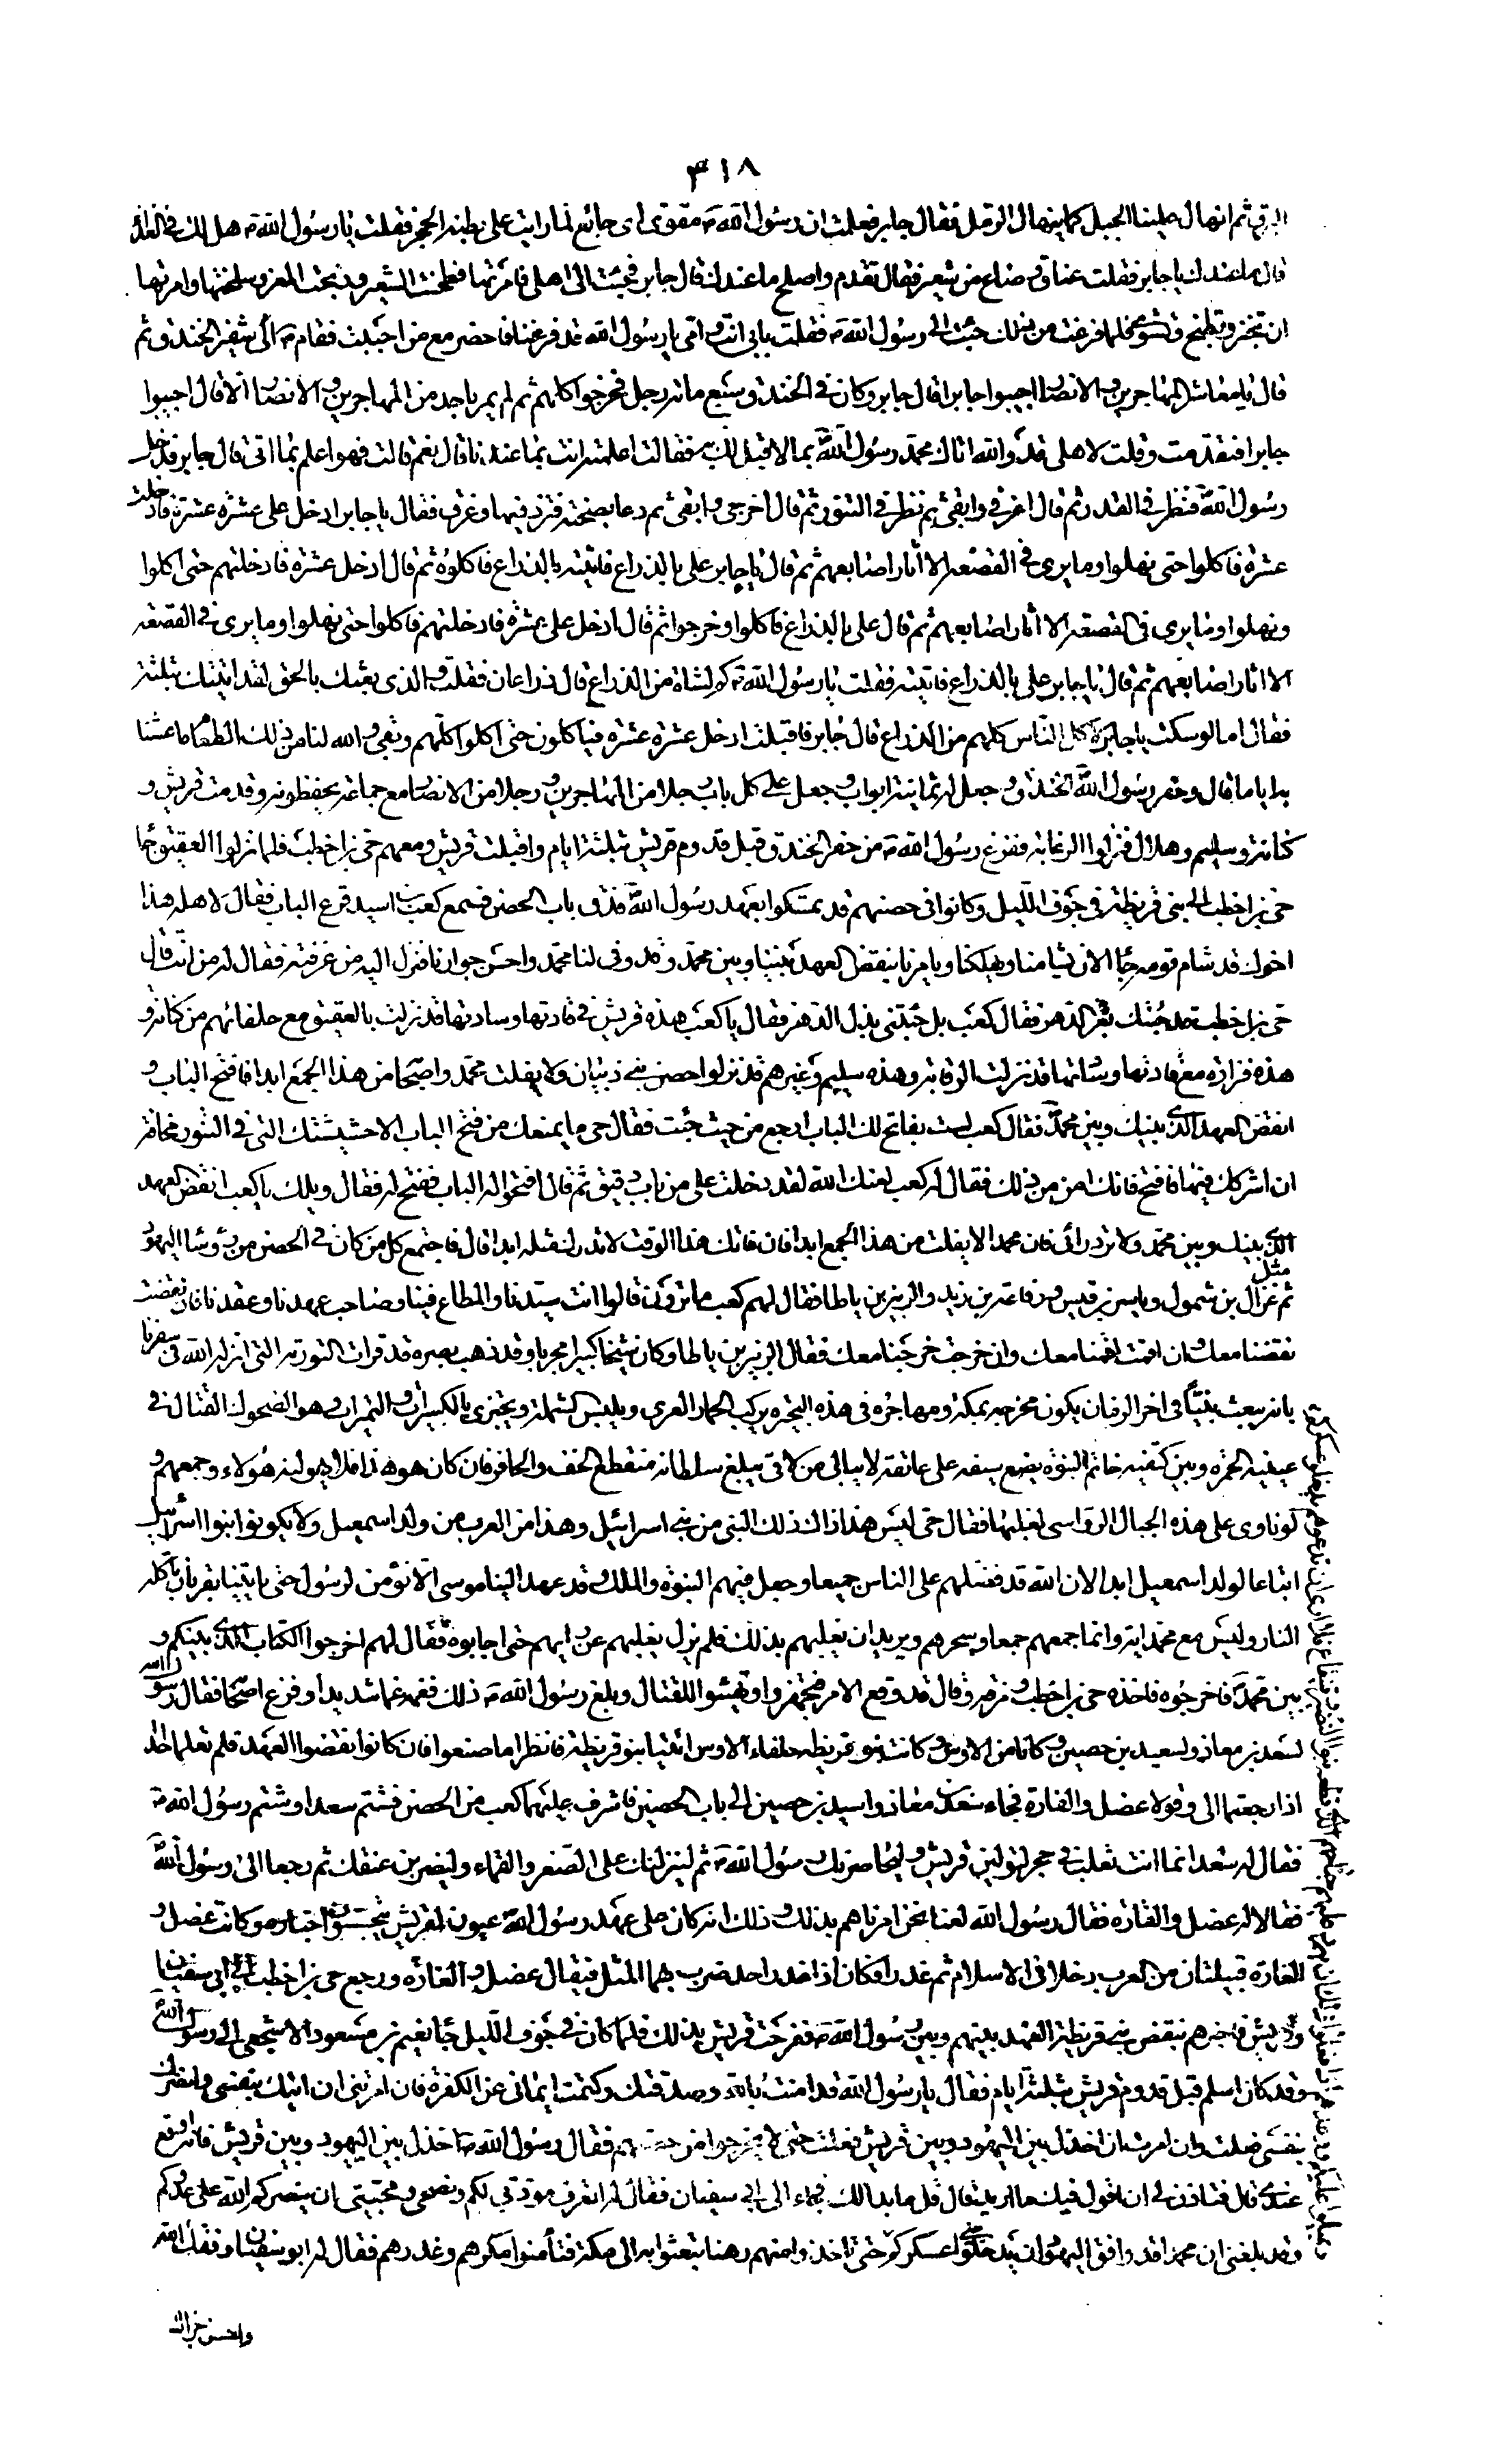 ٣١٨
البرق ثم انهال علينا الجبل كما ينهال الرمل فقال جابر فعلمت ان رسول الله ص مقوى اى جائع لما رايت على بطنه الحجر فقلت يا رسول الله ص هل لك فى الغذاء
قال ما عندك يا جابر فقلت عناق و صاع من شعير فقال تقدم و اصلح ما عندك قال جابر فجئت الى اهلى فامرتها فطحنت الشعير و ذبحت المعز و سلختها و امرتها
ان تخبز و تطبخ و تشوى فلما فرغت من ذلك جئت الى رسول الله ص فقلت بابى انت و امى يا رسول الله قد فرغنا فاحضر مع من احببت فقام ص الى شفير الخندق ثم
قال يا معاشر المهاجرين و الانصار اجيبوا جابرا قال جابر و كان فى الخندق سبع مائة رجل فخرجوا كلهم ثم لم يمر باحد من المهاجرين و الانصار الا قال اجيبوا
جابرا فتقدمت و قلت لاهلى قد و الله اتاك محمد رسول الله بما لا قبل لك به فقالت اعلمته انت بما عندنا قال نعم قالت فهو اعلم بما اتى قال جابر فدخل
رسول الله فنظر فى القدر ثم قال اغرفى و ابقى ثم نظر فى التنور ثم قال اخرجى و ابقى ثم دعا بصحفة فثرد فيها و غرف فقال يا جابر ادخل على عشرة عشرة فادخلت
عشرة فاكلوا حتى نهلوا و ما يرى فى القصعة الا آثار اصابعهم ثم قال يا جابر على بالذراع فاتيته بالذراع فاكلوه ثم قال ادخل عشرة فادخلتهم حتى اكلوا
و نهلوا و ما يرى فى القصعة الا آثار اصابعهم ثم قال على بالذراع فاكلوا و خرجوا ثم قال ادخل على عشرة فادخلتهم فاكلوا حتى نهلوا و ما يرى فى القصعة
الا آثار اصابعهم ثم قال يا جابر على بالذراع فاتيته فقلت يا رسول الله ص كم لشاة من الذراع قال ذراعان فقلت و الذى بعثك بالحق لقد اتيتك بثلثة
فقال اما لو سكت يا جابر لاكل الناس كلهم من الذراع قال جابر فاقبلت ادخل عشرة عشرة فياكلون حتى اكلوا كلهم و بقى و الله لنا من ذلك الطعام ما عشنا
به اياما قال و حفر رسول الله الخندق و جعل له ثمانية ابواب و جعل على كل باب رجلا من المهاجرين و رجلا من الانصار مع جماعة يحفظونه و قدمت قريش و
كنانة و سليم و هلال فنزلوا الرغابة ففرغ رسول الله ص من حفر الخندق قبل قدوم قريش بثلثة ايام و اقبلت قريش و معهم حى بن اخطب فلما نزلوا العقيق جاء
حى بن اخطب الى بنى قريظة فى جوف الليل و كانوا فى حصنهم قد تمسكوا بعهد رسول الله فدق باب الحصن فسمع كعب بن اسيد قرع الباب فقال لاهله هذا
اخوك قد شام قومه جاء الان يشامنا و يهلكنا و يامرنا بنقض العهد بيننا و بين محمد و قد وفى لنا محمد و احسن جوارنا فنزل اليه من غرفته فقال له من انت قال
حى بن اخطب قد جئتك بعز الدهر فقال كعب بل جئتنى بذل الدهر فقال يا كعب هذه قريش فى قادتها و سادتها قد نزلت بالعقيق مع حلفائهم من كنانة و
هذه فزارة مع قادتها و سادتها قد نزلت الرغابة و هذه سليم و غيرهم قد نزلوا حصن بنى ذبيان و لا يفلت محمد و اصحابه من هذا الجمع ابدا فافتح الباب و
انقض العهد الذى بينك و بين محمد فقال كعب لست بفاتح لك الباب ارجع من حيث جئت فقال حى ما يمنعك من فتح الباب الا حشيشتك التى فى التنور مخافة
ان اشركك فيها فافتح فانك امن من ذلك فقال له كعب لعنك الله لقد دخلت على من باب دقيق ثم قال افتحوا له الباب ففتح له فقال ويلك يا كعب انقض العهد
الذى بينك و بين محمد و لا ترد رائى فان محمدا لا يفلت من هذا الجمع ابدا فان فاتك هذا الوقت لا تدرك مثله ابدا قال فاجتمع كل من كان فى الحصن من رؤساء اليهود
مثل
غزال بن شمول و ياسر بن قيس و رفاعة بن زيد و الزبير بن ياطا فقال لهم كعب ما ترون قالوا انت سيدنا و المطاع فينا و صاحب عهدنا و عقدنا فان نقضت
نقضنا معك و ان اقمت اقمنا معك و ان خرجت خرجنا معك فقال الزبير بن ياطا و كان شيخا كبيرا مجربا و قد ذهب بصره قد قرات التورية التى انزلها الله فى سفرنا
بانه يبعث نبيا فى اخر الزمان يكون مخرجه بمكة و مهاجره فى هذه البحيرة يركب الحمار العرى و يلبس الشملة و يجتزى بالكسيرات و التميرات و هو الضحوك القتال فى
عينيه الحمرة و بين كتفيه خاتم النبوة يضع سيفه على عاتقه لا يبالى من لاقى يبلغ سلطانه منقطع الخف و الحافر فان كان هو هذا فلا يهولنه هؤلاء و جمعهم و
لو ناوى على هذه الجبال الرواسى لغلبها فقال حى ليس هذا ذاك ذلك النبى من بنى اسرائيل و هذا من العرب من ولد اسمعيل و لا يكونوا بنوا اسرائيل
اتباعا لولد اسمعيل ابدا لان الله قد فضلهم على الناس جميعا و جعل فيهم النبوة و الملك و قد عهد الينا موسى الا نؤمن لرسول حتى ياتينا بقربان تاكله
النار و ليس مع محمد اية و انما جمعهم جمعا و سحرهم و يريد ان يغلبهم بذلك فلم يزل يقلبهم عن رايهم حتى اجابوه فقال لهم اخرجوا الكتاب الذى بينكم و
بين محمد فاخرجوه فاخذه حى بن اخطب و مزقه و قال قد وقع الامر فتجهزوا و تهيئوا للقتال و بلغ رسول الله ص ذلك فغمه غما شديدا و فزع اصحابه فقال رسول الله
لسعد بن معاذ و لسعيد بن حصين و كانا من الاوس و كانت بنو قريظة حلفاء الاوس ائتيا بنو قريظة فانظرا ما صنعوا فان كانوا نقضوا العهد فلم تعلما احدا
اذا رجعتما الى و قولا عضل و القارة فجاء سعد بن معاذ و اسيد بن حصين الى باب الحصن فاشرف عليهما كعب من الحصن فشتم سعدا و شتم رسول الله ص
فقال له سعد انما انت ثعلب فى جحر لتولين قريش و ليحاصرنك رسول الله ص ثم لينزلنك على الصغر و القماء و ليضربن عنقك ثم رجعا الى رسول الله
فقالا له عضل و القارة فقال رسول الله لعنا نحن امرناهم بذلك و ذلك انه كان على عهد رسول الله عيون لقريش يتجسسون اخباره و كانت عضل و
القارة قبيلتان من العرب دخلا فى الاسلام ثم غدرا فكان اذا غدر احد ضرب بهما المثل فيقال عضل و القارة و رجع حى بن اخطب الى ابى سفيان
و قريش فاخبرهم بنقض بنى قريظة العهد بينهم و بين رسول الله ص ففرحت قريش بذلك فلما كان فى جوف الليل جاء نعيم بن مسعود الاشجعى الى رسول الله
و قد كان اسلم قبل قدوم قريش بثلثة ايام فقال يا رسول الله قد امنت بالله و صدقتك و كتمت ايمانى عن الكفرة فان امرتنى ان اتيك بنفسى و انصرك
بنفسى فعلت و ان امرت ان اخذل بين اليهود و بين قريش فعلت حتى لا يخرجوا من حصنهم فقال رسول الله ص اخذل بين اليهود و بين قريش فانه اوقع
عندى قال فتاذن لى ان اقول فيك ما اريد قال قل ما بدا لك فجاء الى ابى سفيان فقال له اتعرف مودتى لكم و نصحى و محبتى ان ينصركم الله على عدوكم
و قد بلغنى ان محمدا قد وافق اليهود ان يدخلوا عسكركم
حتى تاخذوا منهم رهنا تبعثوا به الى مكة فتأمنوا مكرهم و غدرهم فقال له ابو سفيان وفقك الله
و احسن جزاك